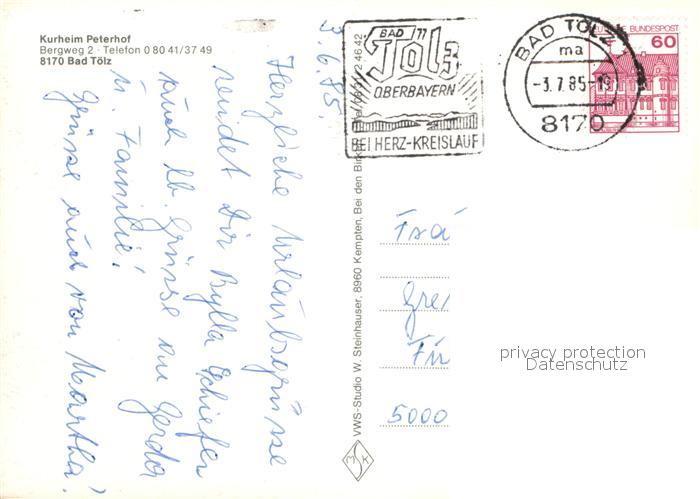 Kurheim Peterhof
Bergweg 2 · Telefon 0 80 41/37 49
8170 Bad Tölz
3.6.85.
Herzliche Urlaubsgrüsse
sendet Dir Bylla Schiefer
auch lb. Grüsse an Gerda
u. Familie!
Grüsse auch von Martha!
VWS-Studio W. Steinhauser, 8960 Kempten, Bei den Birk
2 46 42
MSK
BAD
Tölz
OBERBAYERN
BEI HERZ-KREISLAUF
BAD TÖLZ 1
ma
-3.7.85-19
8170
DEUTSCHE BUNDESPOST
60
Fra
Gre
Fü
5000
privacy protection
Datenschutz